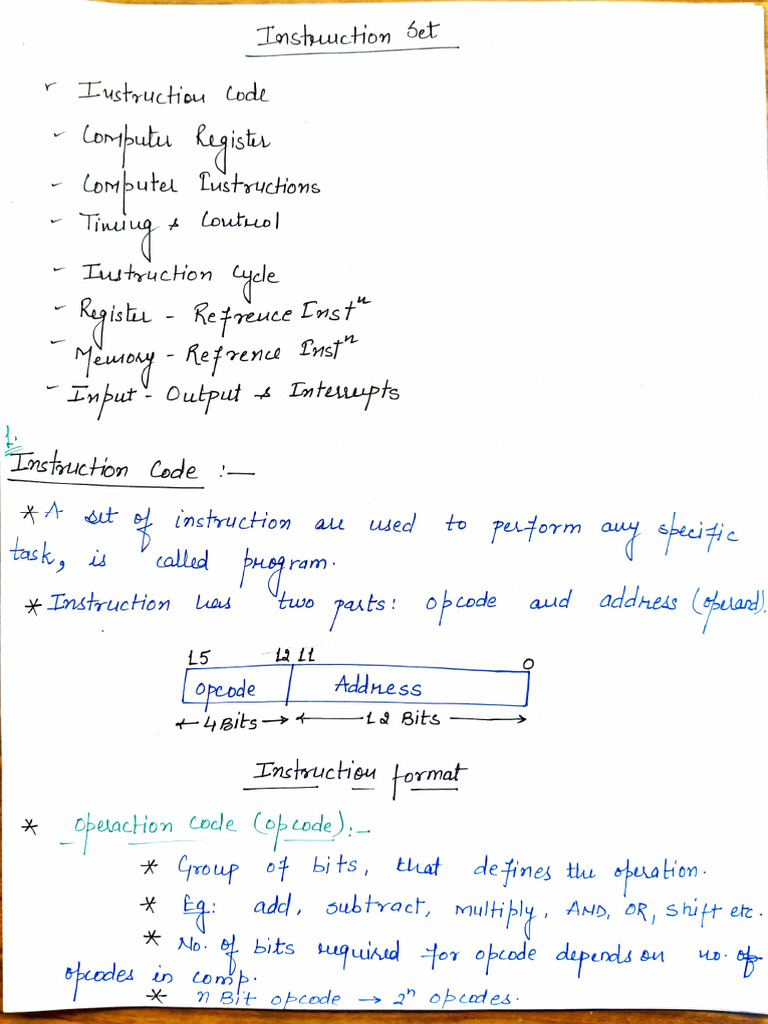 Instruction Set
- Instruction Code
- Computer Register
- Computer Instructions
- Timing & Control
- Instruction Cycle
- Register - Refrence Instⁿ
- Memory - Refrence Instⁿ
- Input - Output & Interrupts
1.
Instruction Code :-
* A set of instruction are used to perform any specific
task, is called program.
* Instruction has two parts: opcode and address (operand).
15 12 11 0
opcode Address
4 Bits 12 Bits
Instruction format
* Operaction code (opcode):-
* Group of bits, that defines the operation.
* Eg: add, subtract, multiply, AND, OR, shift etc.
* No. of bits required for opcode depends on no. of
opcodes in comp.
* n Bit opcode → 2ⁿ opcodes.